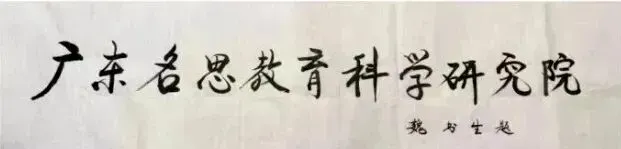 广东名思教育科学研究院
魏书生题